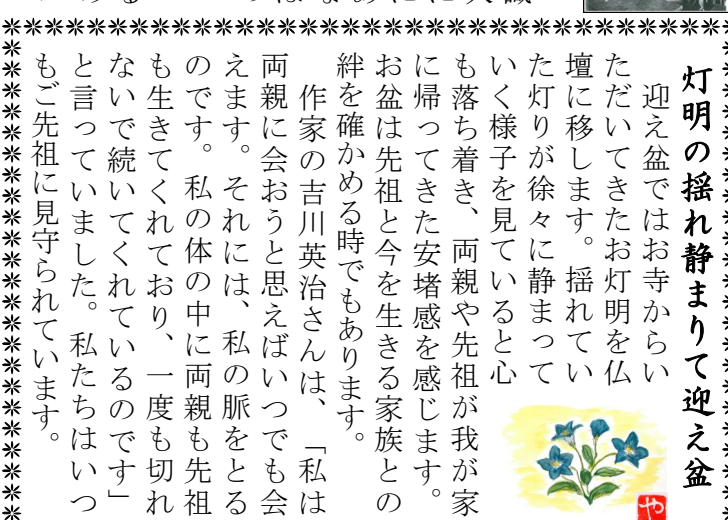 灯明の揺れ静まりて迎え盆
迎え盆ではお寺からい
ただいてきたお灯明を仏
壇に移します。揺れてい
た灯りが徐々に静まって
いく様子を見ていると心
も落ち着き、両親や先祖が我が家
に帰ってきた安堵感を感じます。
お盆は先祖と今を生きる家族との
絆を確かめる時でもあります。
作家の吉川英治さんは、「私は
両親に会おうと思えばいつでも会
えます。それには、私の脈をとる
のです。私の体の中に両親も先祖
も生きてくれており、一度も切れ
ないで続いてくれているのです」
と言っていました。私たちはいつ
もご先祖に見守られています。
や